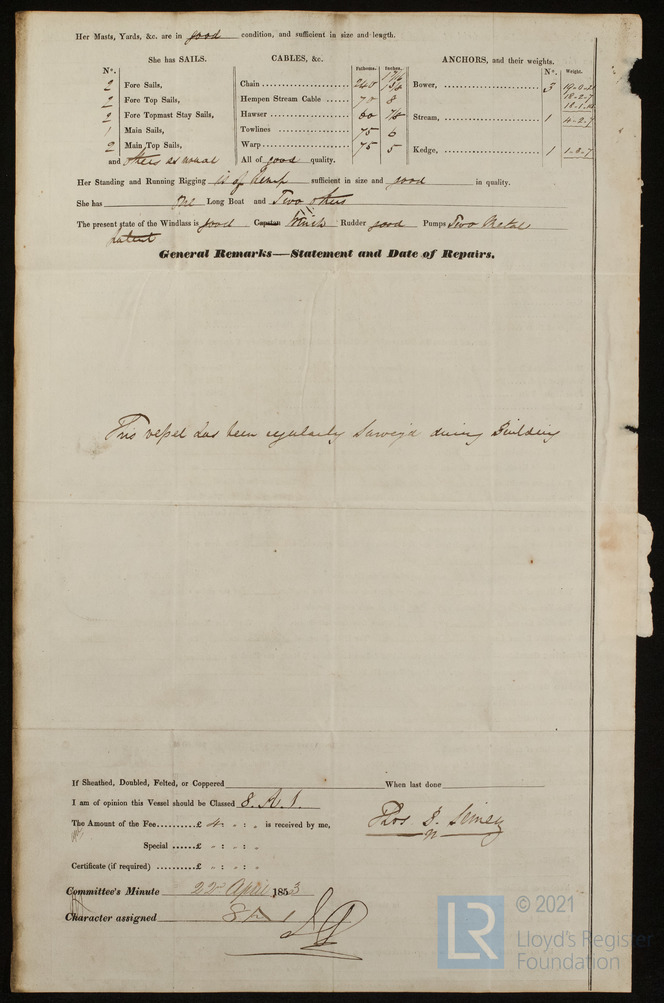 Her Masts, Yards, &c. are in good condition, and sufficient in size and length.
She has SAILS. CABLES, &c. ANCHORS, and their weights.
N°. Fathoms. Inches. N°. Weight.
2 Fore Sails, Chain 240 Bower, 3
2 Fore Top Sails, Hempen Stream Cable 70 8 18-2-7
2 Fore Topmast Stay Sails, Hawser 60 Stream, 1 4-2-7
1 Main Sails, Towlines 75 6
2 Main Top Sails, Warp 75 5 Kedge, 1
and others as usual All of good quality.
Her Standing and Running Rigging is of Hemp sufficient in size and good in quality.
She has One Long Boat and Two others
The present state of the Windlass is good Capstan Winch Rudder good Pumps Two Metal
patent
General Remarks—Statement and Date of Repairs.
This vessel has been regularly Survey'd during Building
If Sheathed, Doubled, Felted, or Coppered When last done
I am of opinion this Vessel should be Classed 8. A. 1.
The Amount of the Fee.........£ 4 " : " : " is received by me,
Thos B. Simey
Special ......£ " : " : "
Certificate (if required) ..........£ " : " : "
Committee's Minute 22nd April 1853
Character assigned 8 A 1
LR
© 2021
Lloyd's Register
Foundation